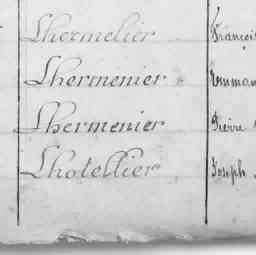 Lhermelier François
Lhermenier Emman
Lhermenier Pierre
Lhotellier Joseph